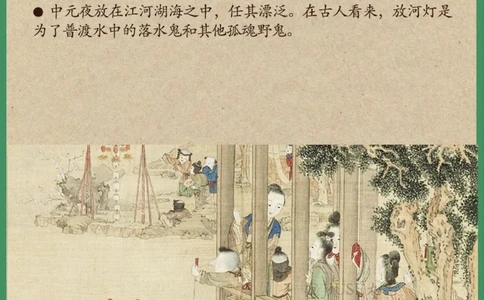 ● 中元夜放在江河湖海之中，任其漂泛。在古人看来，放河灯是
为了普渡水中的落水鬼和其他孤魂野鬼。